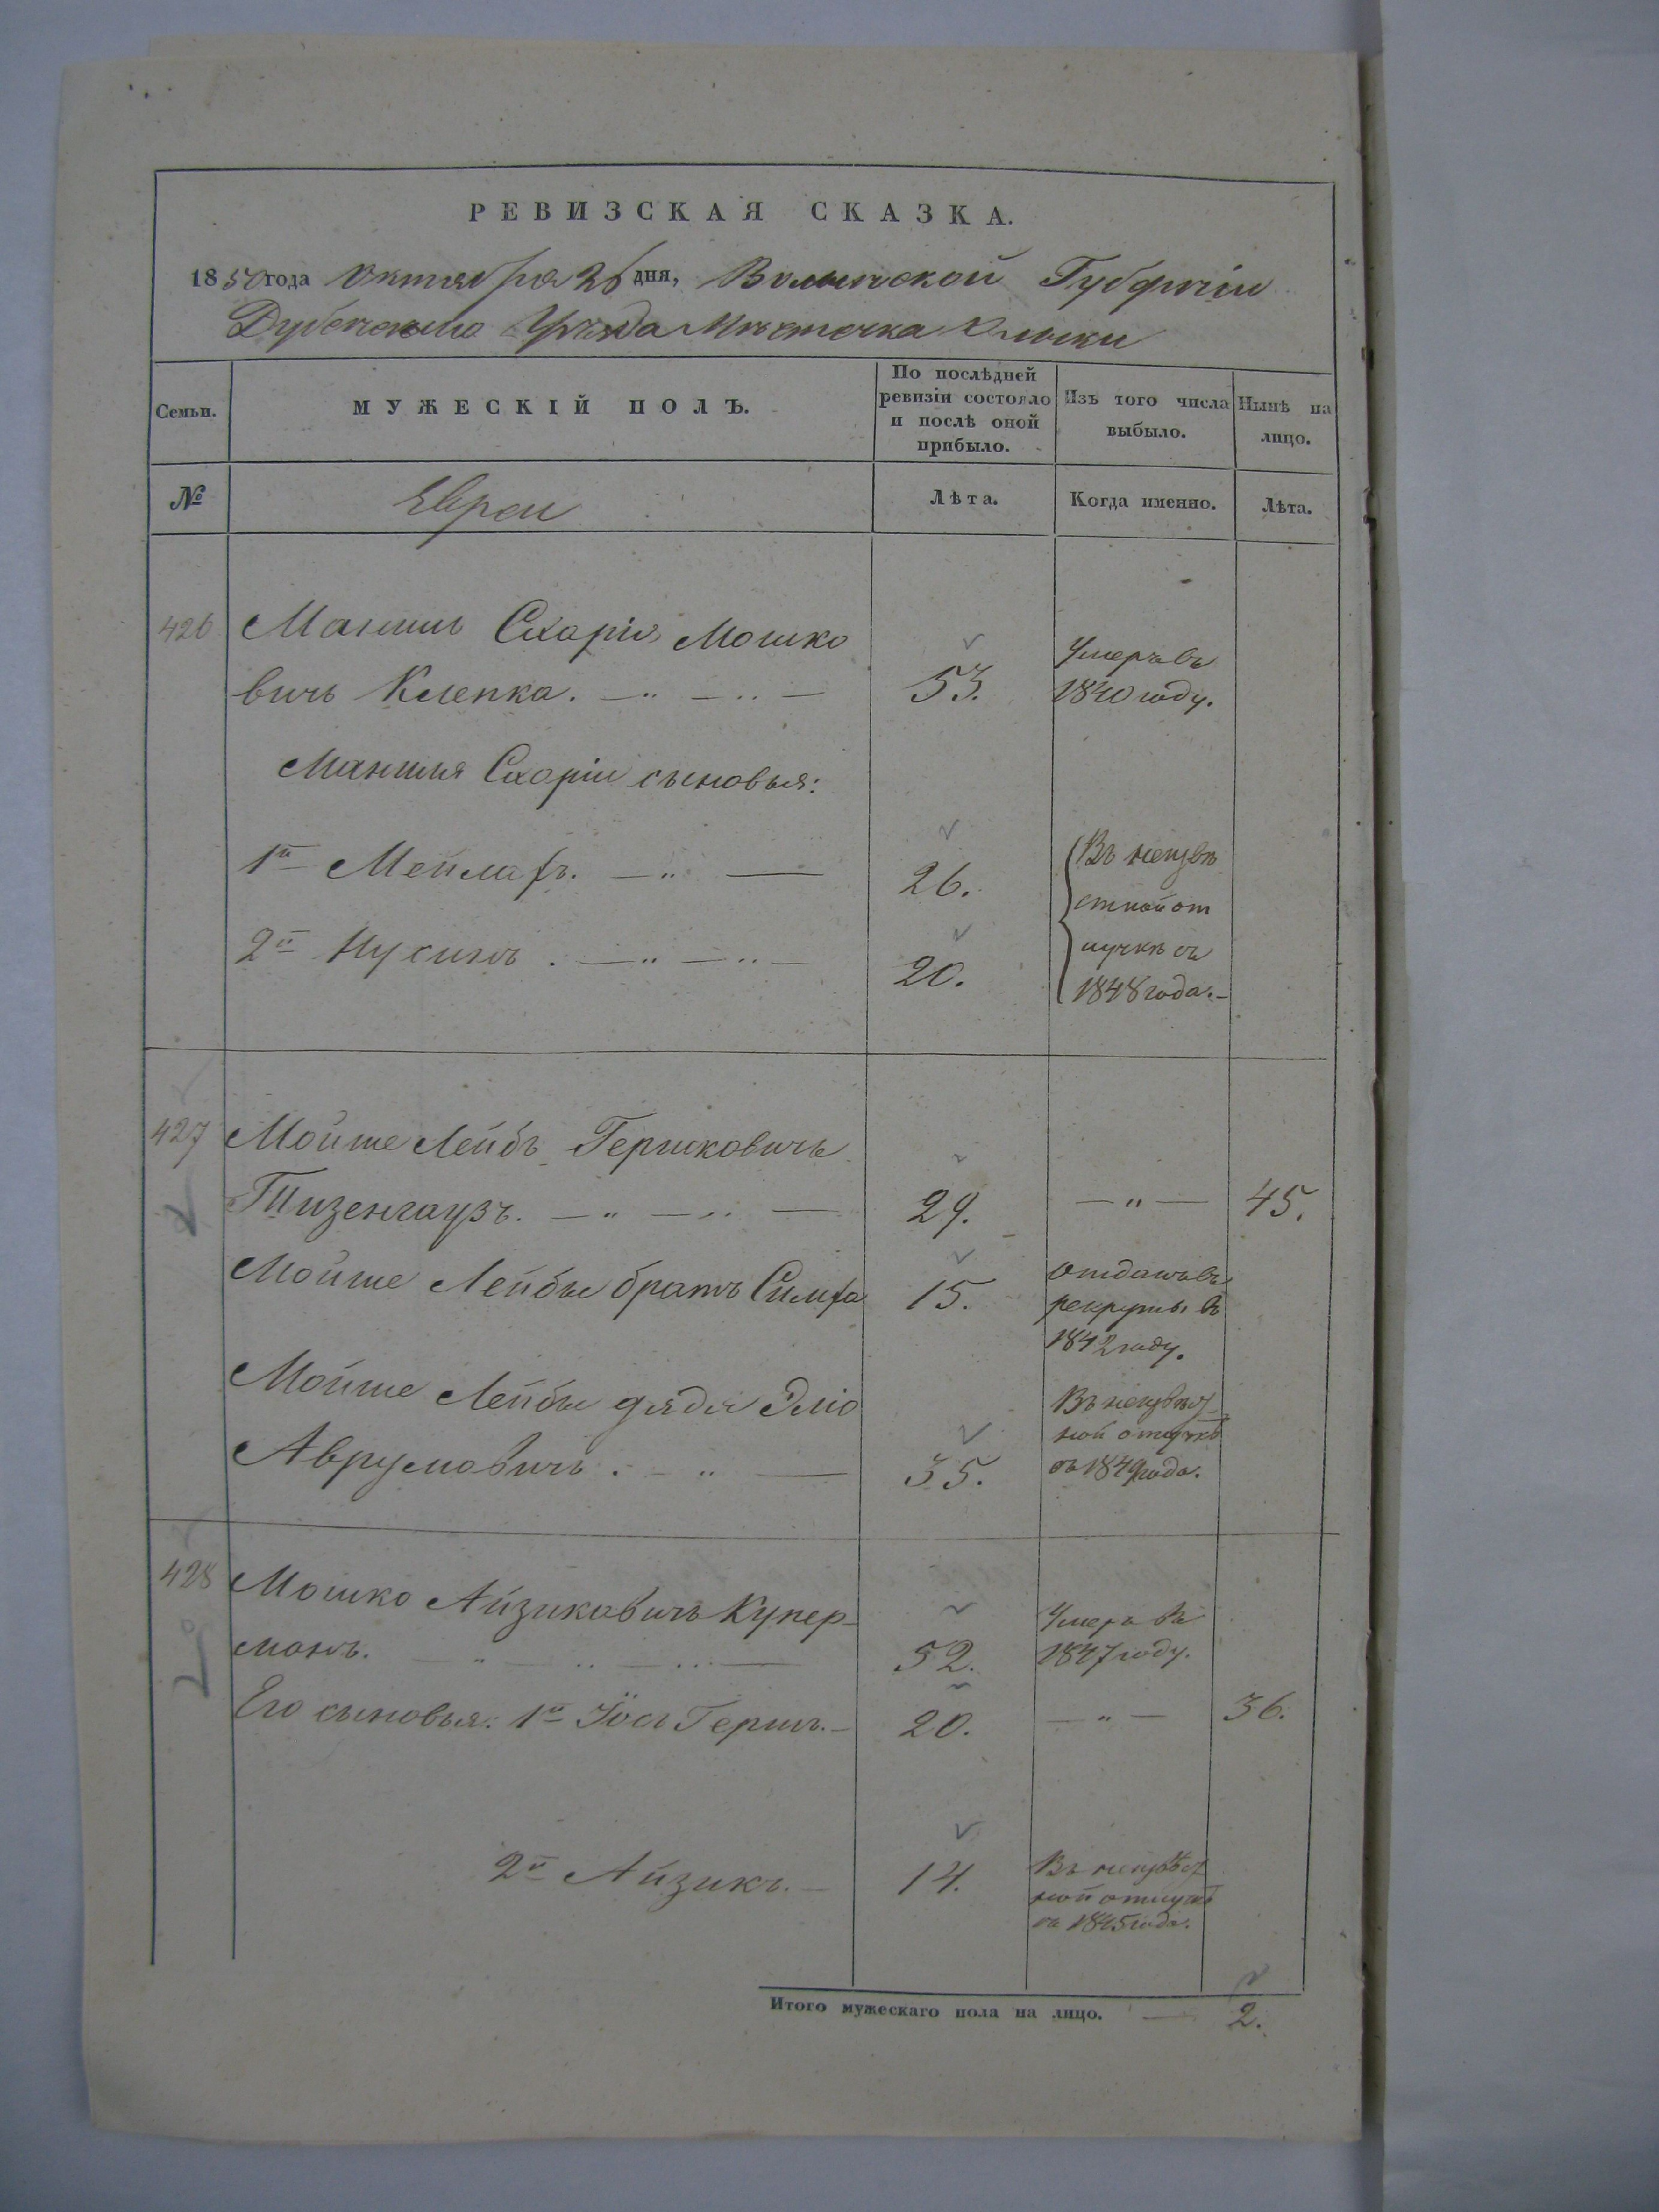 РЕВИЗСКАЯ СКАЗКА.
1850 года Октября 26 дня, Волынской Губерніи
Дубенского Уѣзда Мѣстечка Олыки
Семьи.
МУЖЕСКІЙ ПОЛЪ.
По послѣдней
ревизіи состояло
и послѣ оной
прибыло.
Изъ того числа
выбыло.
Нынѣ на
лицо.
№
Евреи
Лѣта.
Когда именно.
Лѣта.
426 Маншъ Схарія Мошко
вичъ Клепка. 53. Умеръ въ
1840 году.
Маншя Схаріи сыновья:
1й Мейлахъ. 26. Въ неизвѣ
стной от
2й Нусинъ. 20. лучкѣ съ
1848 года.
427 Мойше Лейбъ Гершковичъ
Тизенгаузъ. 29. — " — 45.
Мойше Лейбы братъ Симха 15. отданъ въ
рекруты въ
1842 году.
Мойше Лейбы дядя Эліо
Аврумовичъ. 35. Въ неизвѣст
ной отлучкѣ
съ 1849 года.
428 Мошко Айзиковичъ Купер-
манъ. 52. Умеръ въ
1847 году.
Его сыновья: 1й Йось Гершъ. 20. — " — 36.
2й Айзикъ. 14. Въ неизвѣст
ной отлучкѣ
съ 1845 года.
Итого мужескаго пола на лицо. — 2.